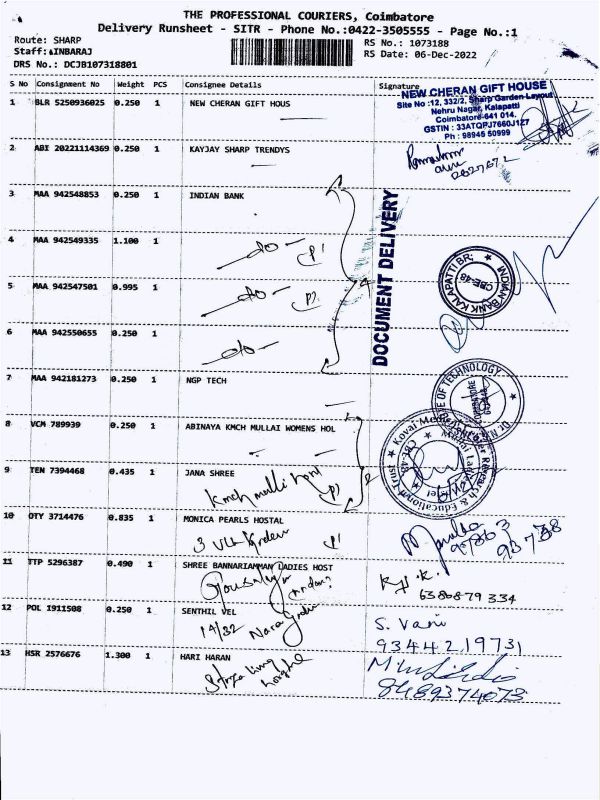 THE PROFESSIONAL COURIERS, Coimbatore
Delivery Runsheet - SITR - Phone No.:0422-3505555 - Page No.:1
Route: SHARP
RS No.: 1073188
Staff: INBARAJ
RS Date: 06-Dec-2022
DRS No.: DCJB107318801
S No Consignment No Weight PCS Consignee Details Signature
1 BLR 5250936025 0.250 1 NEW CHERAN GIFT HOUS
NEW CHERAN GIFT HOUSE
Site No :12, 332/2, Sharp Garden Layout
Nehru Nagar, Kalapatti
Coimbatore-641 014.
GSTIN : 33ATQPJ7660J1Z7
Ph : 98945 50999
2 ABI 20221114369 0.250 1 KAYJAY SHARP TRENDYS
3 MAA 942548853 0.250 1 INDIAN BANK
DOCUMENT DELIVERY
4 MAA 942549335 1.100 1 -do-
INDIAN BANK KALAPATTI BR;
CBE-48
5 MAA 942547501 0.995 1 -do-
6 MAA 942550655 0.250 1 -do-
7 MAA 942181273 0.250 1 NGP TECH
OF TECHNOLOGY
8 VCM 789939 0.250 1 ABINAYA KMCH MULLAI WOMENS HOL
9 TEN 7394468 0.435 1 JANA SHREE
Research & Educational Trust
10 OTY 3714476 0.835 1 MONICA PEARLS HOSTAL
11 TTP 5296387 0.490 1 SHREE BANNARIAMMAN LADIES HOST
63868 79 334
12 POL 1911508 0.250 1 SENTHIL VEL
14/32
S. Vani
9344219731
13 HSR 2576676 1.300 1 HARI HARAN
8489374073